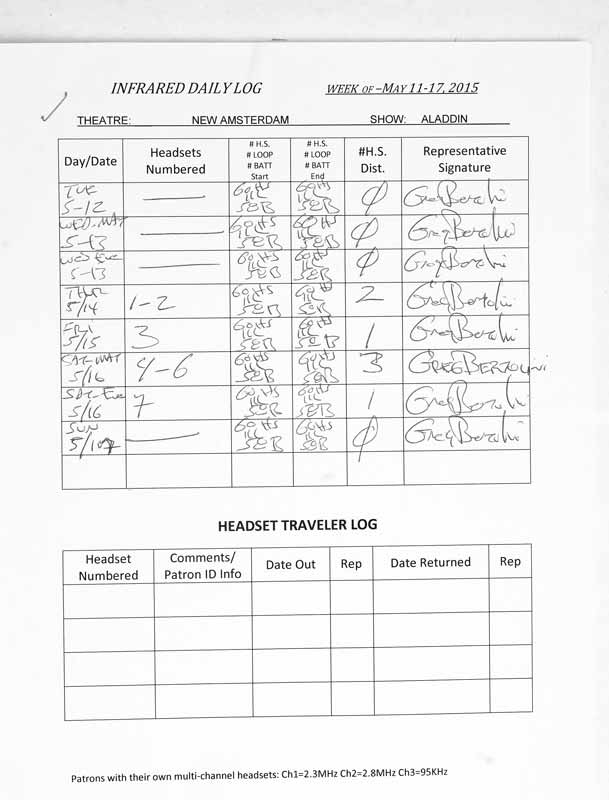 INFRARED DAILY LOG WEEK OF – MAY 11-17, 2015
THEATRE: NEW AMSTERDAM SHOW: ALADDIN
Day/Date Headsets Numbered # H.S. # LOOP # BATT Start # H.S. # LOOP # BATT End #H.S. Dist. Representative Signature
TUE 5-12 — 60 HS 58B 60 HS 58B Ø Greg Bertolini
WED. MAT 5-13 — 60 HS 58B 60 HS 58B Ø Greg Bertolini
WED EVE 5-13 — 60 HS 58B 60 HS 58B Ø Greg Bertolini
THUR 5/14 1-2 60 HS 58B 60 HS 58B 2 Greg Bertolini
FRI 5/15 3 60 HS 58B 60 HS 58B 1 Greg Bertolini
SAT-MAT 5/16 4-6 60 HS 58B 60 HS 58B 3 GREG BERTOLINI
SAT-EVE 5/16 7 60 HS 58B 60 HS 58B 1 Greg Bertolini
SUN 5/17 — 60 HS 58B 60 HS 58B Ø Greg Bertolini
HEADSET TRAVELER LOG
Headset Numbered Comments/ Patron ID Info Date Out Rep Date Returned Rep
Patrons with their own multi-channel headsets: Ch1=2.3MHz Ch2=2.8MHz Ch3=95KHz